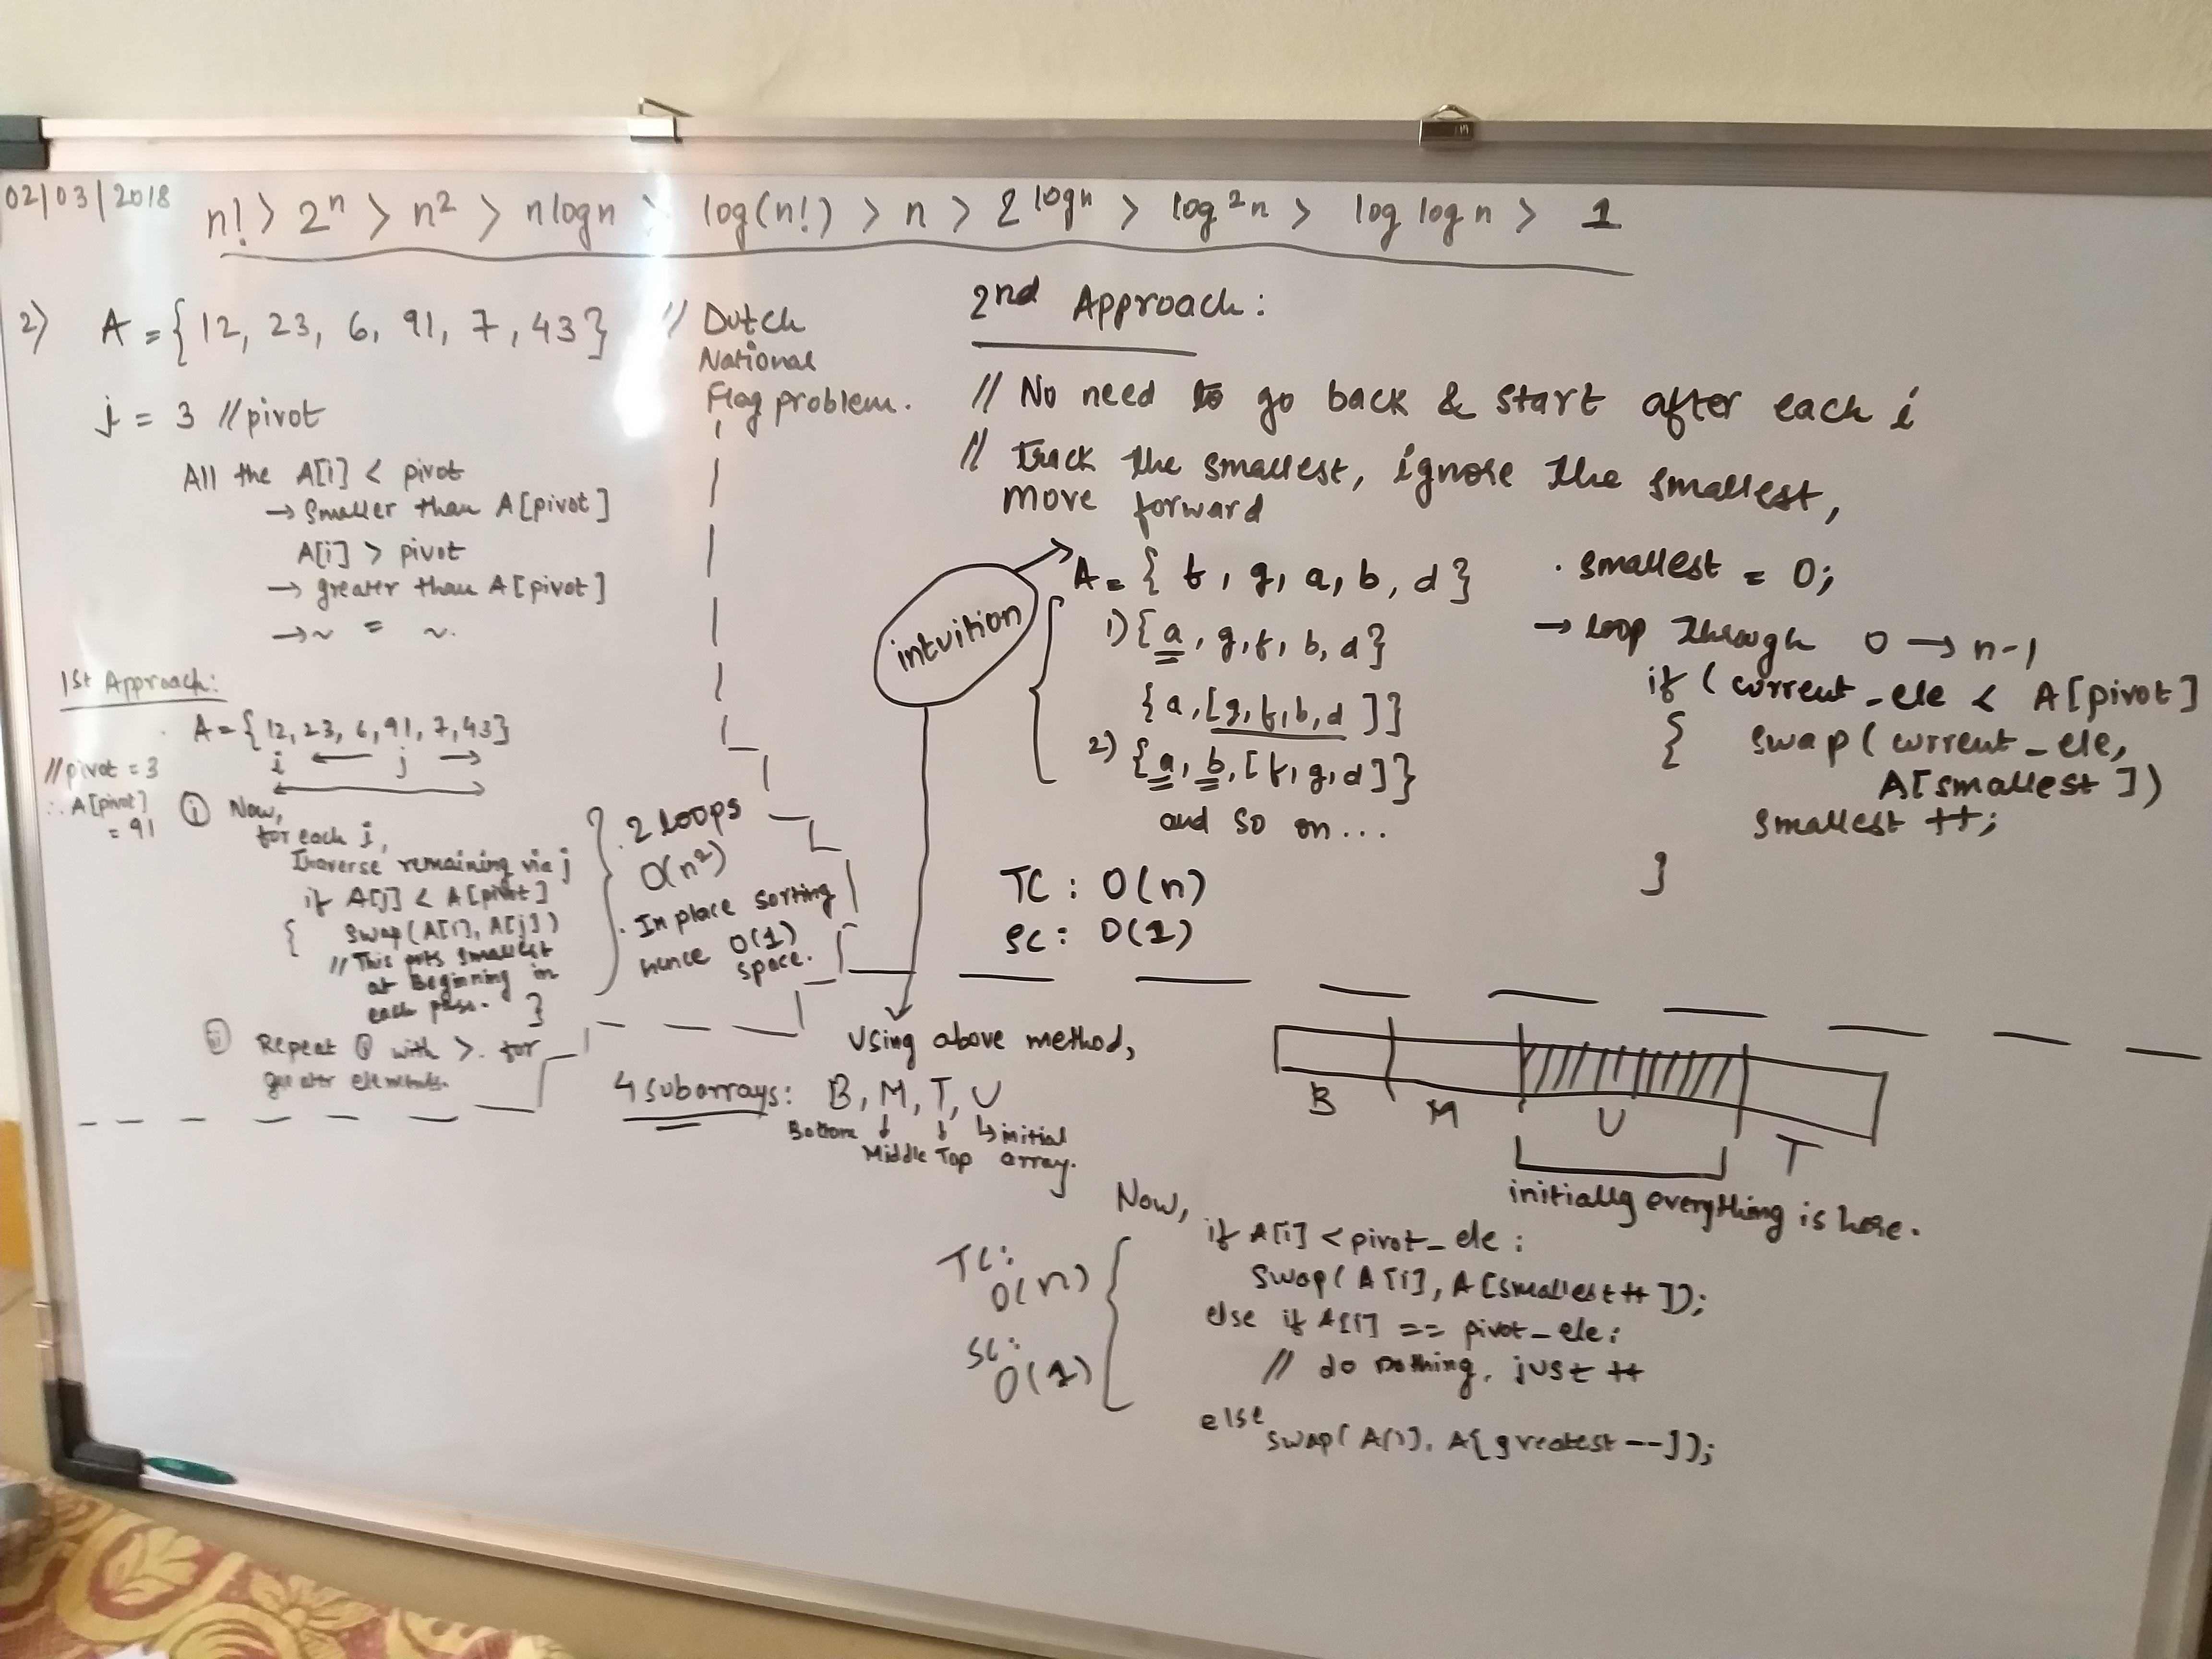 02/03/2018
n! > 2^n > n² > nlogn > log(n!) > n > 2^logn > log²n > log log n > 1
2) A = {12, 23, 6, 91, 7, 43} // Dutch
National
Flag problem.
j = 3 //pivot
All the A[i] < pivot
→ Smaller than A[pivot]
A[i] > pivot
→ greater than A[pivot]
→ ~ = ~.
1st Approach:
A = {12, 23, 6, 91, 7, 43}
i ← j →
//pivot = 3
∴ A[pivot]
= 91
① Now,
for each i,
Traverse remaining via j
if A[j] < A[pivot]
{ swap(A[i], A[j])
// This puts smallest
at Beginning in
each pass. }
Repeat ① with >. for
greater elements.
. 2 loops
O(n²)
. In place sorting
hence O(1)
space.
2nd Approach:
// No need to go back & start after each i
// Track the smallest, ignore the smallest,
move forward
intuition
A = { f, g, a, b, d }
1) {a, g, f, b, d}
{a, [g, f, b, d]}
2) {a, b, [f, g, d]}
and so on...
TC: O(n)
SC: O(1)
. smallest = 0;
→ loop through 0 → n-1
if (current_ele < A[pivot]
{ swap(current_ele,
A[smallest])
smallest ++;
}
Using above method,
4 subarrays: B, M, T, U
Bottom Middle Top initial
array.
B M U T
initially everything is here.
Now,
if A[i] < pivot_ele:
swap(A[i], A[smallest++]);
else if A[i] == pivot_ele:
// do nothing, just ++
else
swap(A[i], A[greatest--]);
TC:
O(n)
SC:
O(1)